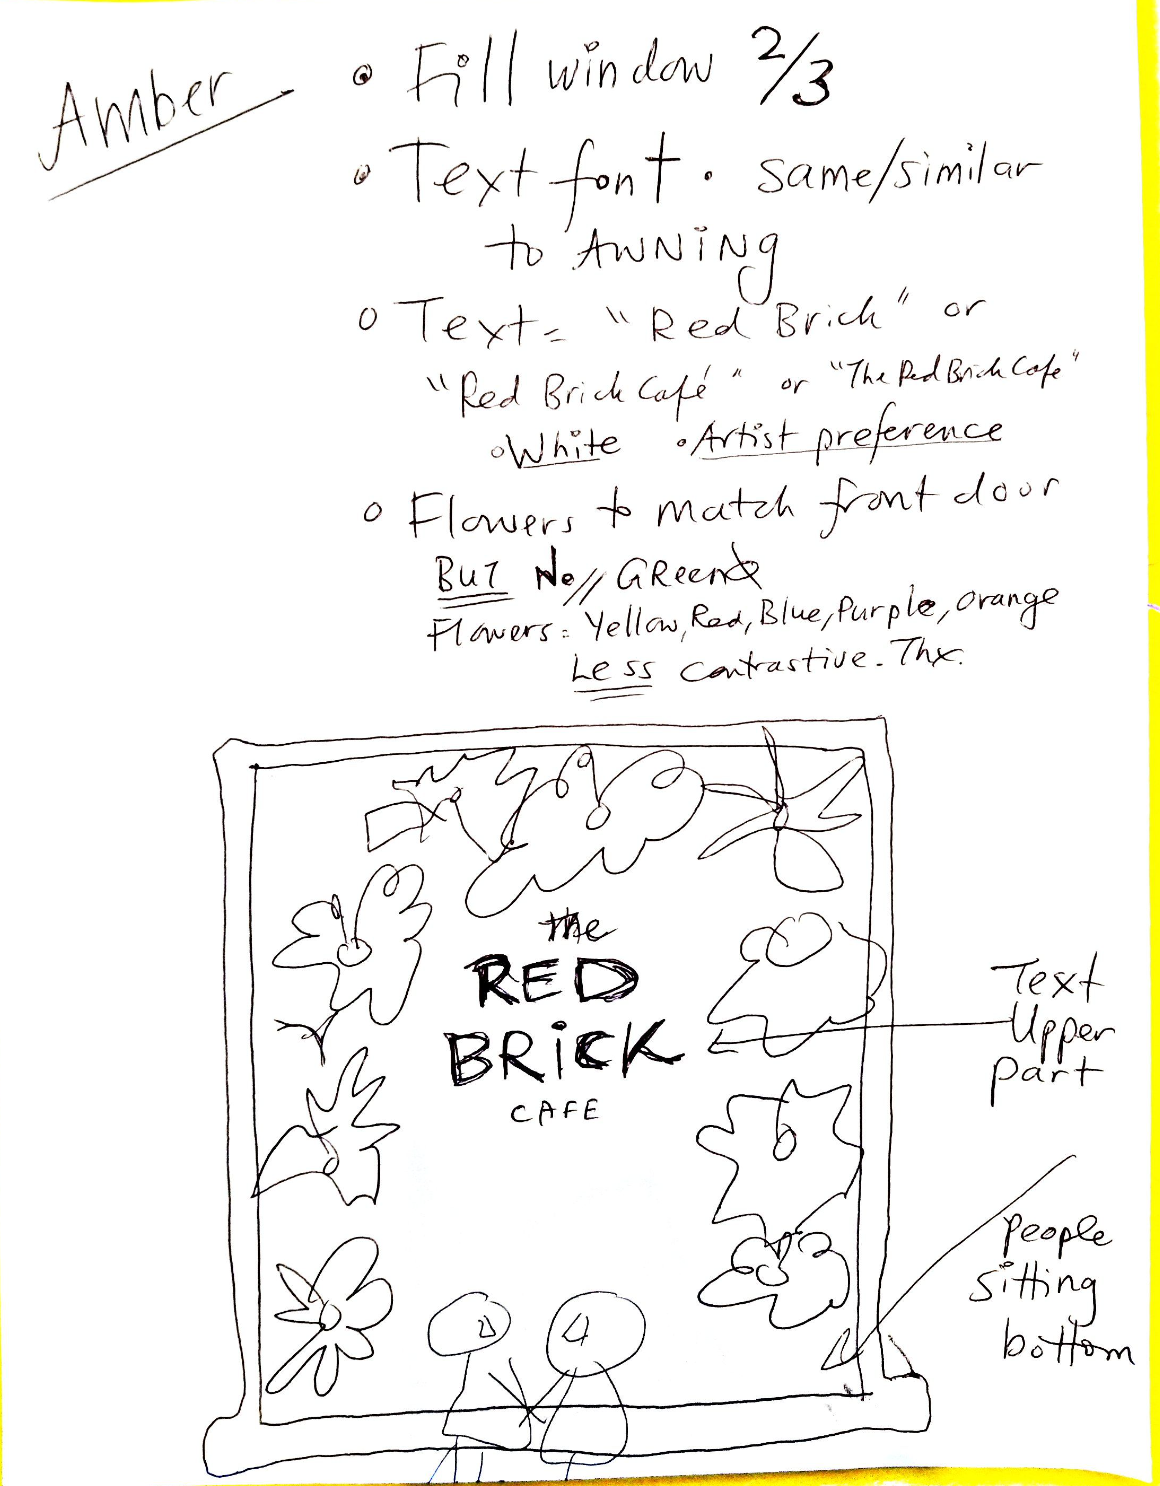 Amber
• Fill window 2/3
• Text font • same/similar
to AWNiNg
• Text = "Red Brick" or
"Red Brick Café" or "The Red Brick Cafe"
• White • Artist preference
• Flowers to match front door
BUT No GReen
Flowers = Yellow, Red, Blue, Purple, orange
Less contrastive. Thx.
the
RED
BRiCK
CAFE
Text
Upper
part
people
sitting
bottom